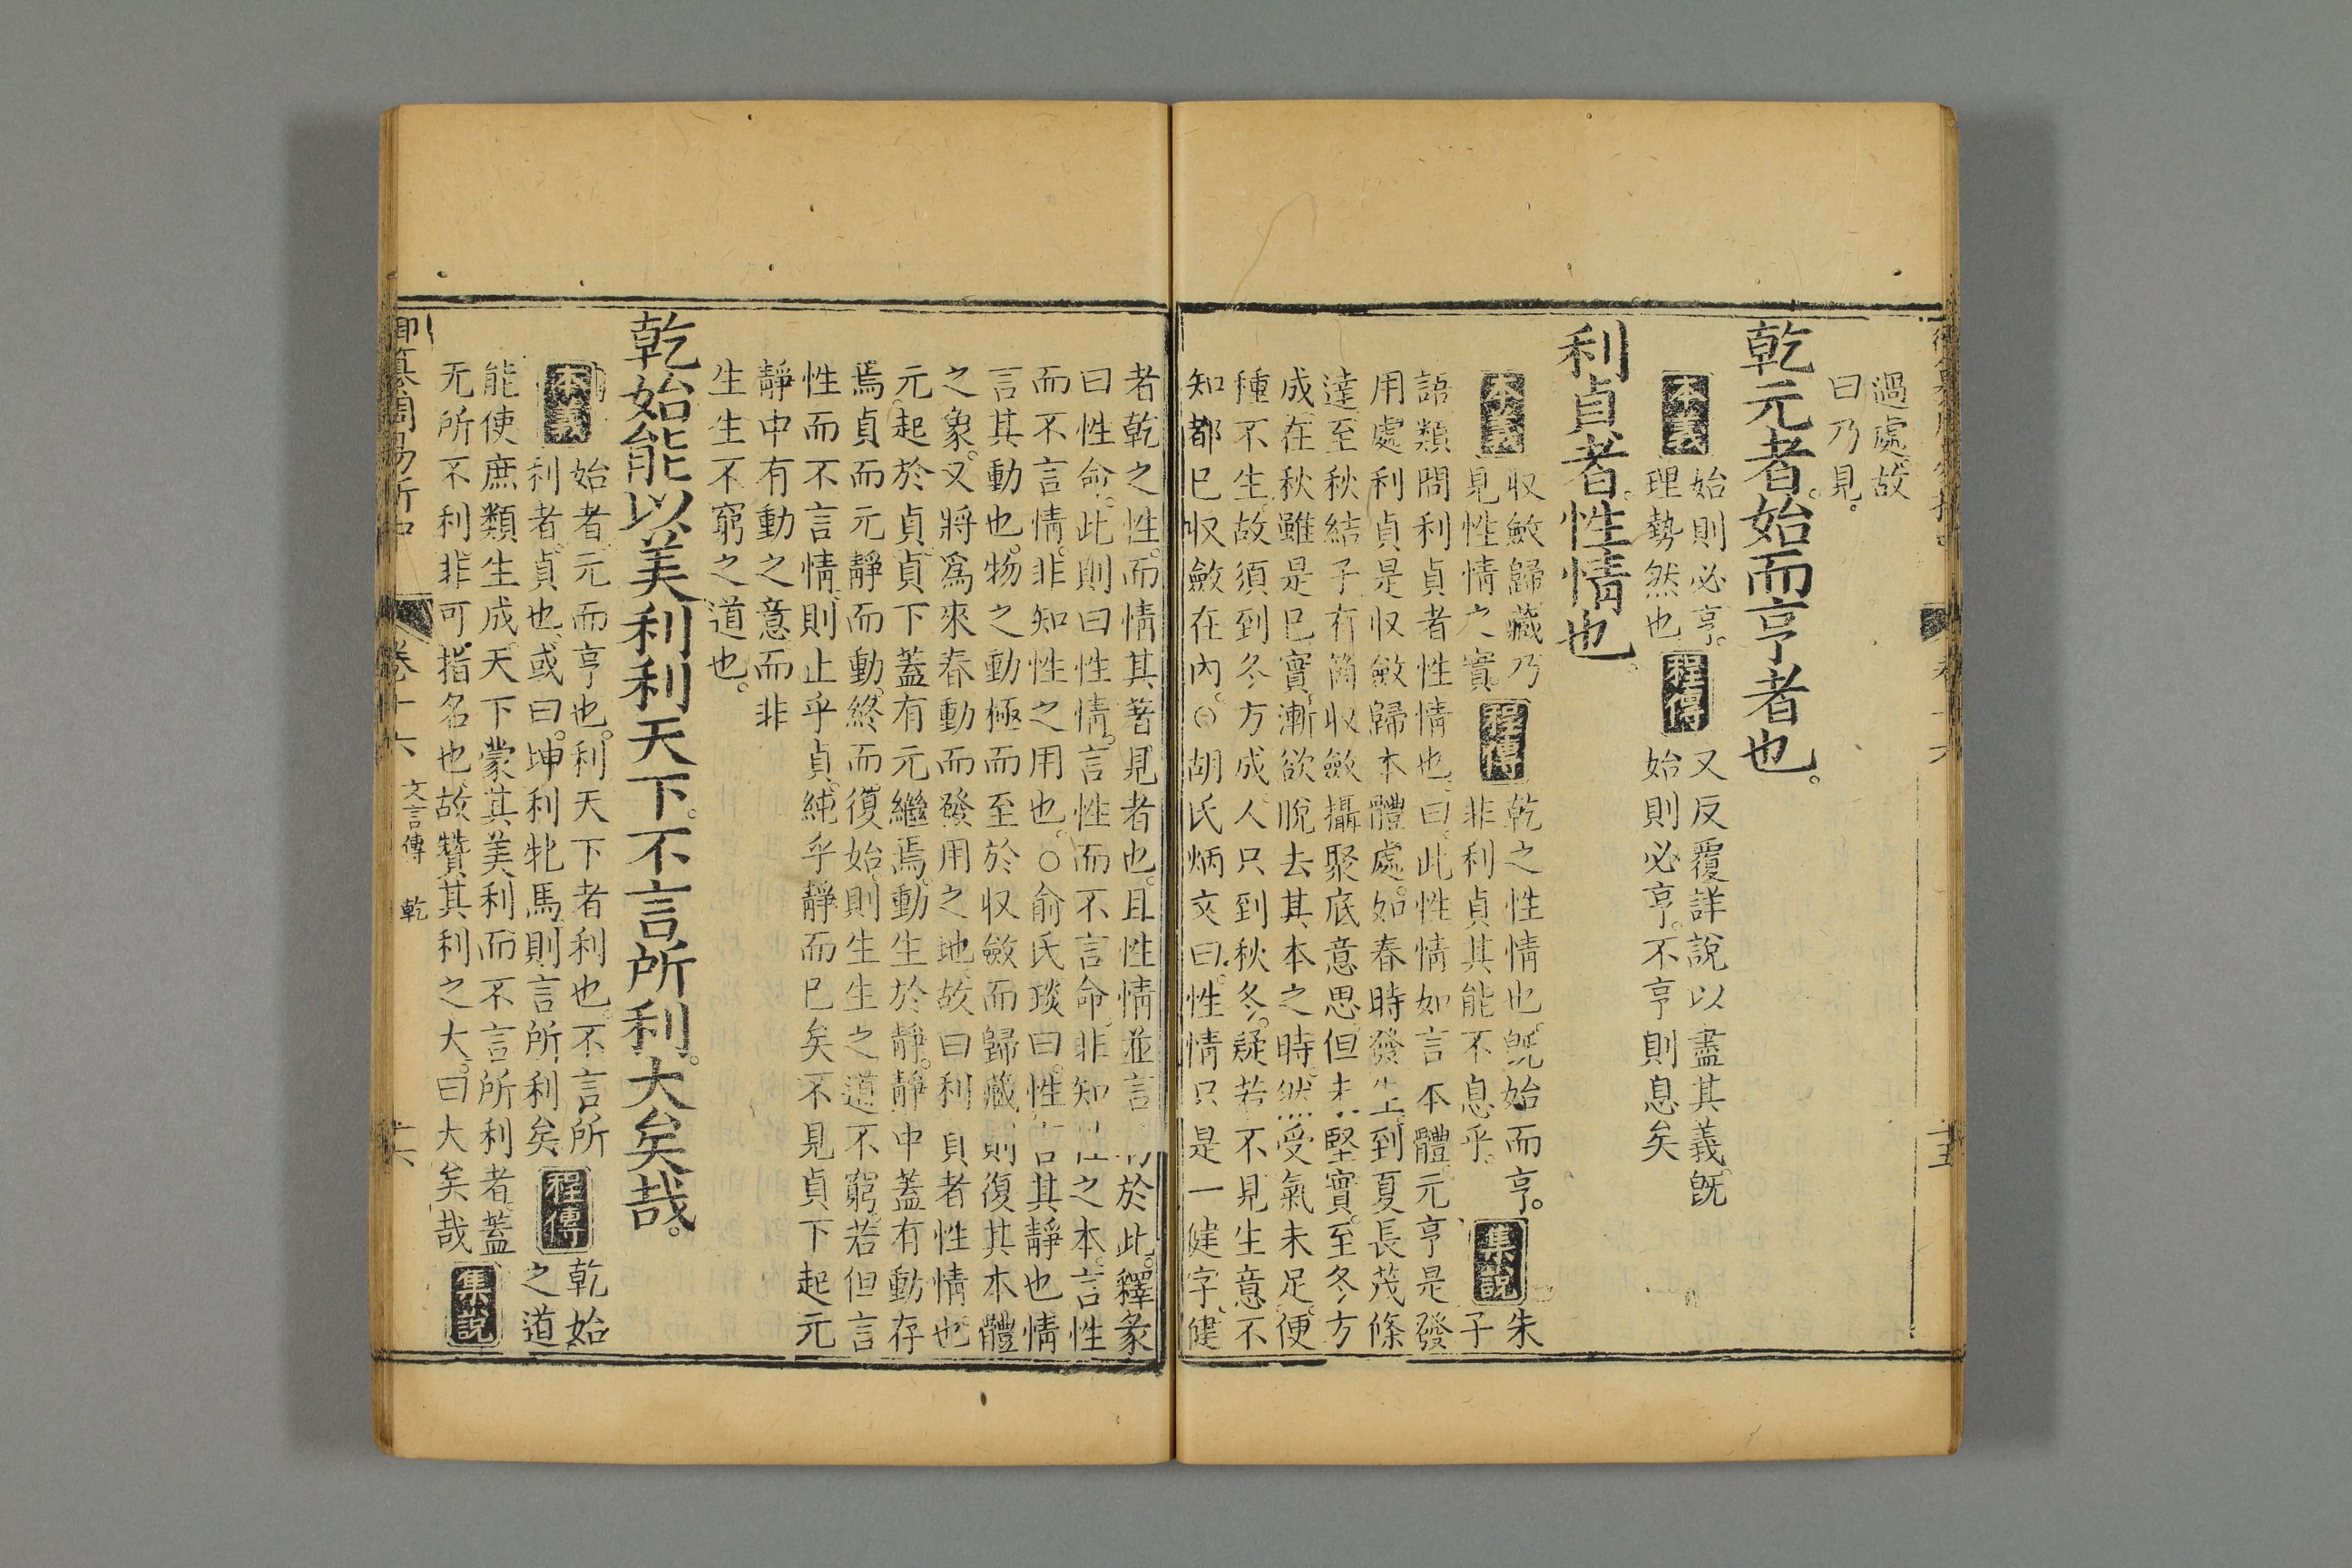 過處故
曰乃見
乾元者始而亨者也
本義
始則必亨
理勢然也
程傳
又反覆詳說以盡其義既
始則必亨不亨則息矣
利貞者性情也
本義
收斂歸藏乃
見性情之實
程傳
乾之性情也既始而亨
非利貞其能不息乎
集說
朱
子
語類問利貞者性情也曰此性情如言本體元亨是發
用處利貞是收斂歸本體處如春時發生到夏長茂條
達至秋結子有箇收斂攝聚底意思但未堅實至冬方
成在秋雖是巳實漸欲脫去其本之時然受氣未足便
種不生故須到冬方成人只到秋冬疑若不見生意不
知都巳收斂在內○胡氏炳文曰性情只是一健字健
者乾之性而情其著見者也且性情並言於此釋彖
曰性命此則曰性情言性而不言命非知性之本言性
而不言情非知性之用也○俞氏琰曰性言其靜也情
言其動也物之動極而至於收斂而歸藏則復其本體
之象又將爲來春動而發用之地故曰利貞者性情也
元起於貞貞下蓋有元繼焉動生於靜靜中蓋有動存
焉貞而元靜而動終而復始則生生之道不窮若但言
性而不言情則止乎貞純乎靜而巳矣不見貞下起元
靜中有動之意而非
生生不窮之道也
乾始能以美利利天下不言所利大矣哉
本義
始者元而亨也利天下者利也不言所
利者貞也或曰坤利牝馬則言所利矣
程傳
乾始
之道
能使庶類生成天下蒙其美利而不言所利者蓋
无所不利非可指名也故贊其利之大曰大矣哉
集說
御纂周易折中
卷十六
文言傳 乾